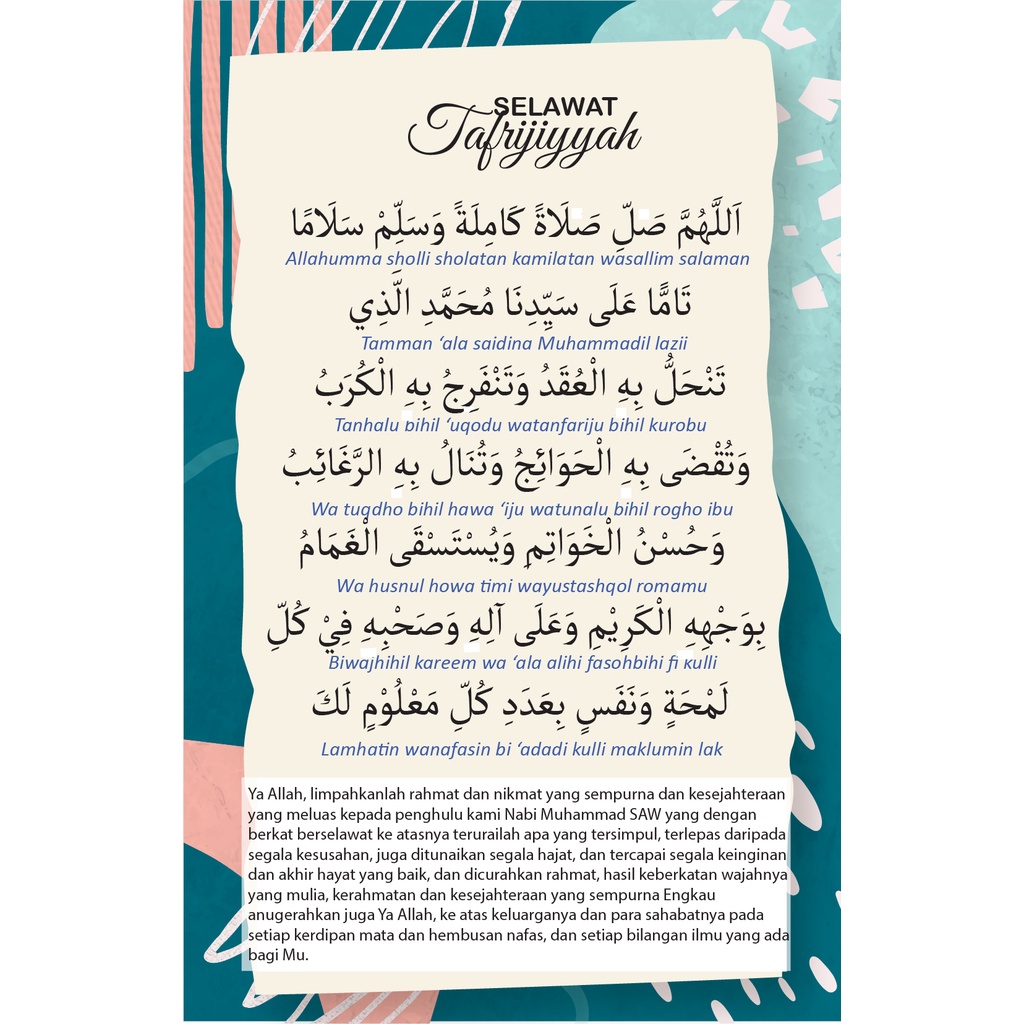 SELAWAT
Tafrijiyyah
اَللَّهُمَّ صَلِّ صَلَاةً كَامِلَةً وَسَلِّمْ سَلَامًا
Allahumma sholli sholatan kamilatan wasallim salaman
تَامًّا عَلَى سَيِّدِنَا مُحَمَّدِ الَّذِي
Tamman ‘ala saidina Muhammadil lazii
تَنْحَلُّ بِهِ الْعُقَدُ وَتَنْفَرِجُ بِهِ الْكُرَبُ
Tanhalu bihil ‘uqodu watanfariju bihil kurobu
وَتُقْضَى بِهِ الْحَوَائِجُ وَتُنَالُ بِهِ الرَّغَائِبُ
Wa tuqdho bihil hawa ‘iju watunalu bihil rogho ibu
وَحُسْنُ الْخَوَاتِمِ وَيُسْتَسْقَى الْغَمَامُ
Wa husnul howa timi wayustashqol romamu
بِوَجْهِهِ الْكَرِيْمِ وَعَلَى آلِهِ وَصَحْبِهِ فِيْ كُلِّ
Biwajhihil kareem wa ‘ala alihi fasohbihi fi kulli
لَمْحَةٍ وَنَفَسٍ بِعَدَدِ كُلِّ مَعْلُوْمٍ لَكَ
Lamhatin wanafasin bi ‘adadi kulli maklumin lak
Ya Allah, limpahkanlah rahmat dan nikmat yang sempurna dan kesejahteraan
yang meluas kepada penghulu kami Nabi Muhammad SAW yang dengan
berkat berselawat ke atasnya terurailah apa yang tersimpul, terlepas daripada
segala kesusahan, juga ditunaikan segala hajat, dan tercapai segala keinginan
dan akhir hayat yang baik, dan dicurahkan rahmat, hasil keberkatan wajahnya
yang mulia, kerahmatan dan kesejahteraan yang sempurna Engkau
anugerahkan juga Ya Allah, ke atas keluarganya dan para sahabatnya pada
setiap kerdipan mata dan hembusan nafas, dan setiap bilangan ilmu yang ada
bagi Mu.